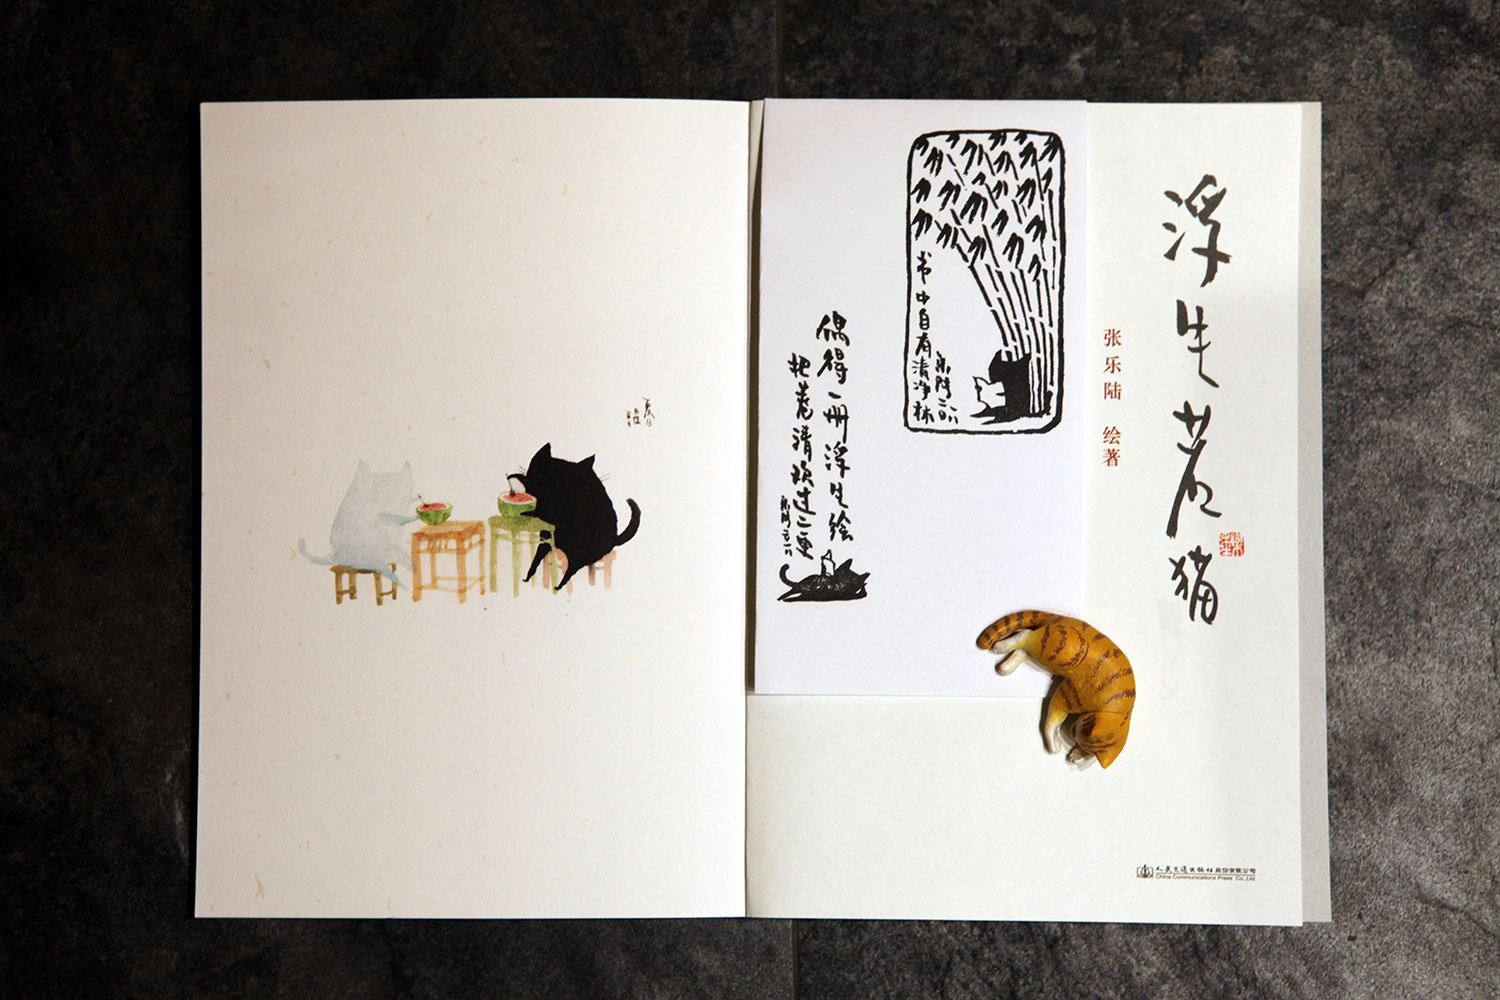 夏日
书中自有清净林
乐陆二〇一八
偶得一册浮生绘
把 清 过二更
浮生若猫
张乐陆 绘著
人民交通出版社股份有限公司
China Communications Press Co.,Ltd.